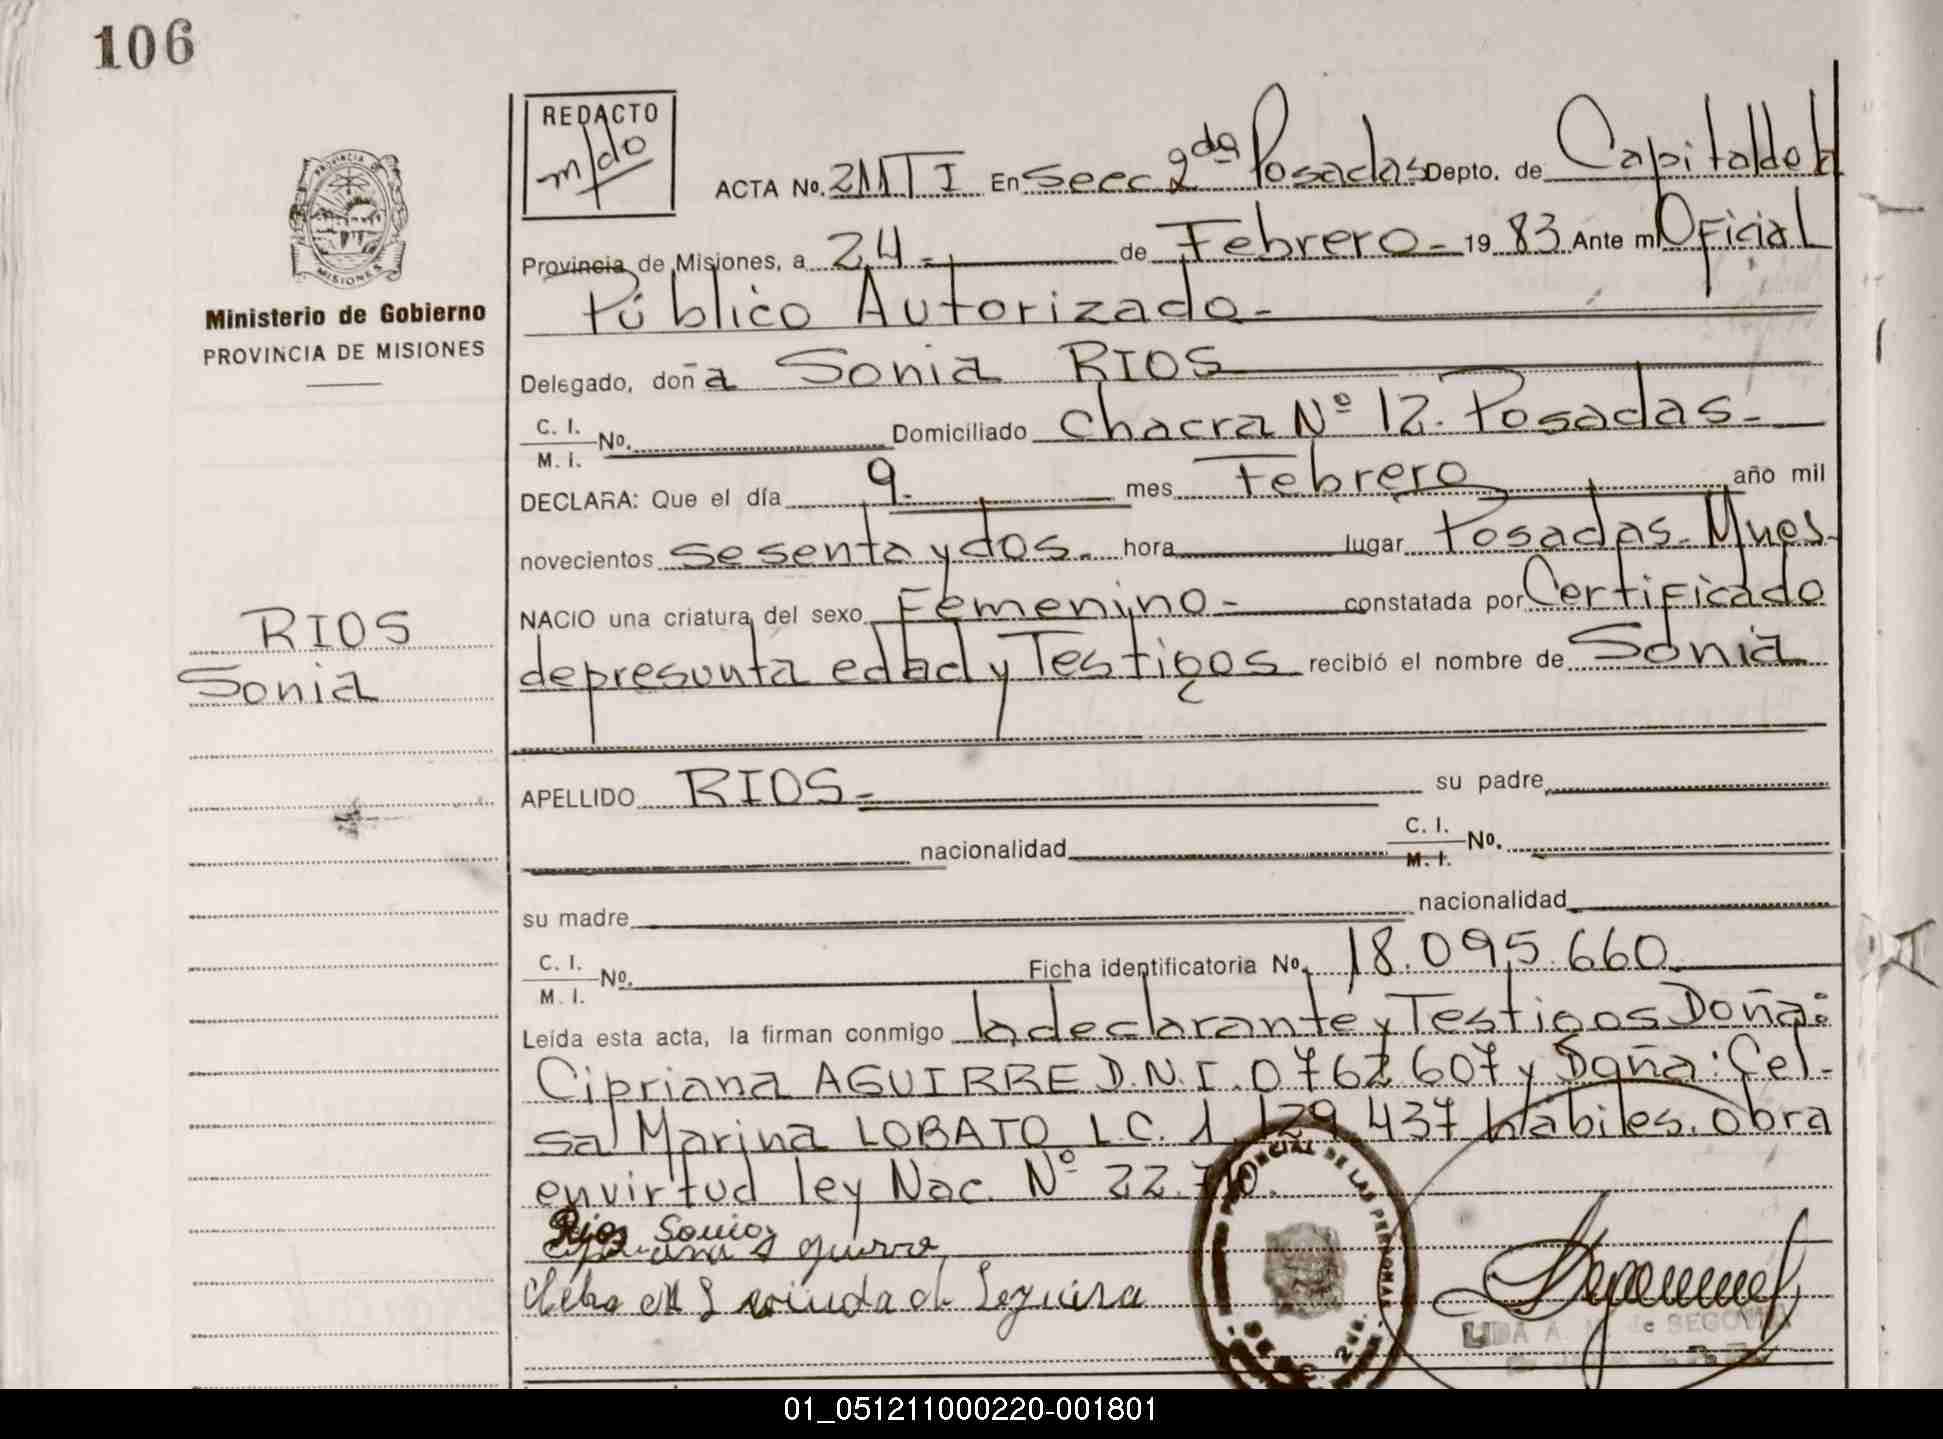 106
REDACTO
m/do
ACTA No. 211 T I En Secc 2da Posadas Depto. de Capital de la
Provincia de Misiones, a 24 - de Febrero - 19 83 Ante mi Oficial
Público Autorizado -
PROVINCIA DE
MISIONES
Ministerio de Gobierno
PROVINCIA DE MISIONES
Delegado, doña Sonia RIOS
C. I.
M. I.
No. Domiciliado Chacra Nº 12. Posadas -
DECLARA: Que el día 9. mes Febrero año mil
novecientos sesenta y dos. hora lugar Posadas. Mnes.
NACIO una criatura del sexo Femenino - constatada por Certificado
de presunta edad y Testigos recibió el nombre de Sonia
RIOS
Sonia
APELLIDO RIOS - su padre
nacionalidad C. I.
M. I.
No.
su madre nacionalidad
C. I.
M. I.
No. Ficha identificatoria No. 18.095.660
Leída esta acta, la firman conmigo la declarante y Testigos Doña:
Cipriana AGUIRRE D.N.I. 0762607 y Doña: Cel-
sa Marina LOBATO L.C. 1.129.437 habiles. obra
en virtud ley Nac. Nº 22.
Rios Sonia
Cipriana Aguirre
viuda de Seguira
PROVINCIAL DE LAS PERSONAS
LIDA A. de SEGOVIA
01_051211000220-001801